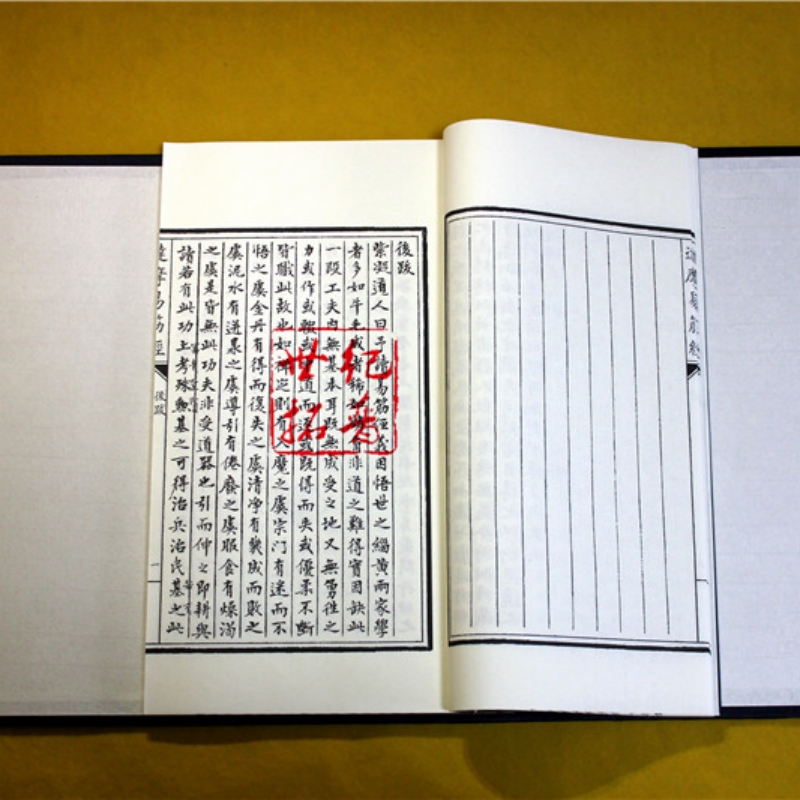 達摩易筋經
後跋
紫凝道人曰予讀易筋經義因悟世之緇黃兩家學
者多如牛毛成者稀如麟角非道之難得實因缺此
一段工夫內無基本耳既無成受之地又無勇往之
力或作或輟或望道而返或既得而失或優柔不斷
皆職此故也如禪定則有入魔之虞宗門有迷而不
悟之虞金丹有得而復失之虞清淨有幾成而敗之
虞泥水有迸泉之虞導引有倦廢之虞服食有燥渴
之虞是皆無此功夫非受道器也引而伸之即耕與
讀若有此功上考殊勳基之可得治兵治民基之此
達摩易筋經
後跋
一
世纪
拓